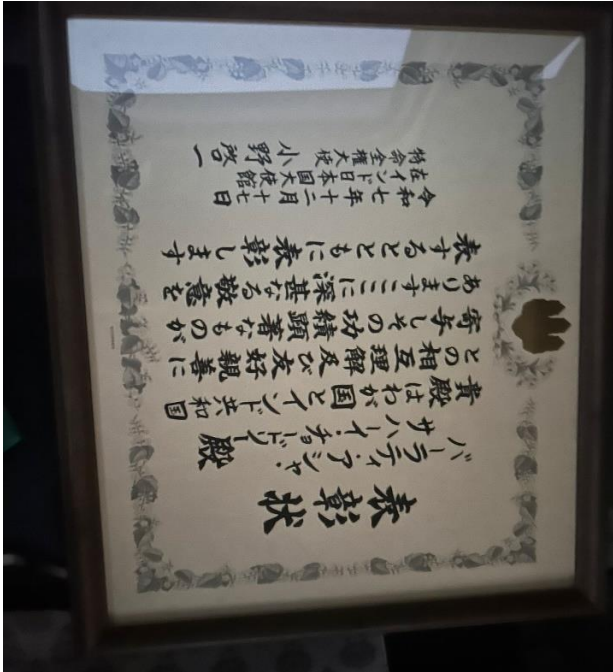 表彰状
バーラティ・アシャ・
サハーイ・チョードリー 殿
貴殿はわが国とインド共和国
との相互理解及び友好親善に
寄与しその功績顕著なものが
ありますここに深甚なる敬意を
表するとともに表彰します
令和七年十二月十七日
在インド日本国大使館
特命全権大使 小野啓一